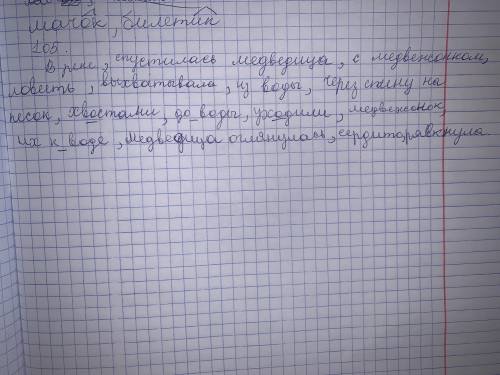 мачок, билетик
105.
В реке, спустилась медведица, с медвежонком,
ловить, выхватавала, из воды, через спину на
песок, хвостами, до воды, уходили, медвежонок,
их к воде, медведица оглянулась, сердито рявкнула